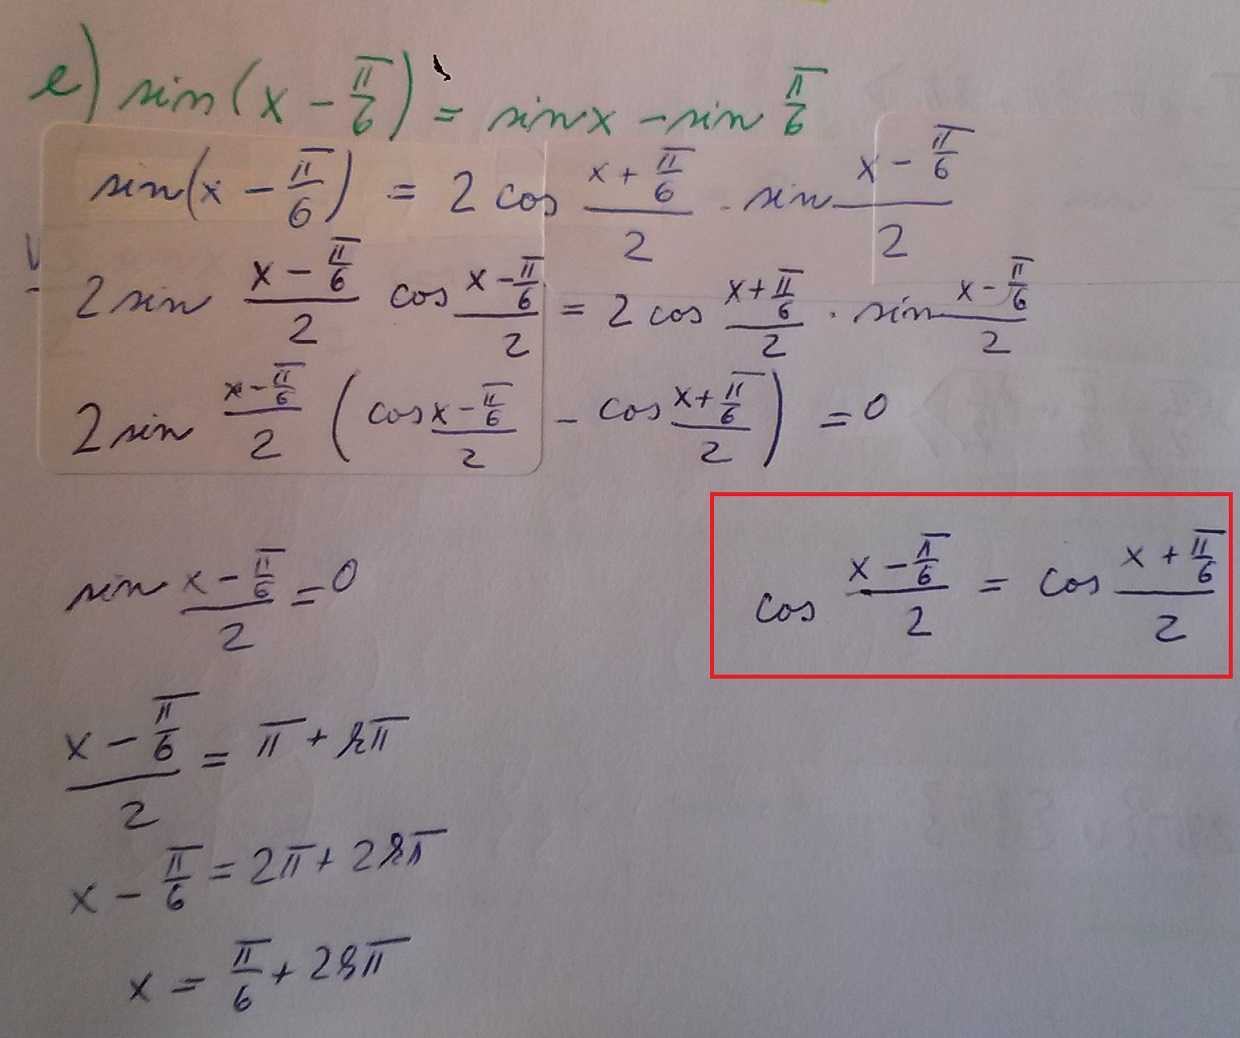 e) sin(x - π/6) = sinx - sin π/6
sin(x - π/6) = 2 cos (x + π/6)/2 · sin (x - π/6)/2
2 sin (x - π/6)/2 cos (x - π/6)/2 = 2 cos (x + π/6)/2 · sin (x - π/6)/2
2 sin (x - π/6)/2 (cos (x - π/6)/2 - cos (x + π/6)/2) = 0
sin (x - π/6)/2 = 0
cos (x - π/6)/2 = cos (x + π/6)/2
(x - π/6)/2 = π + kπ
x - π/6 = 2π + 2kπ
x = π/6 + 2kπ